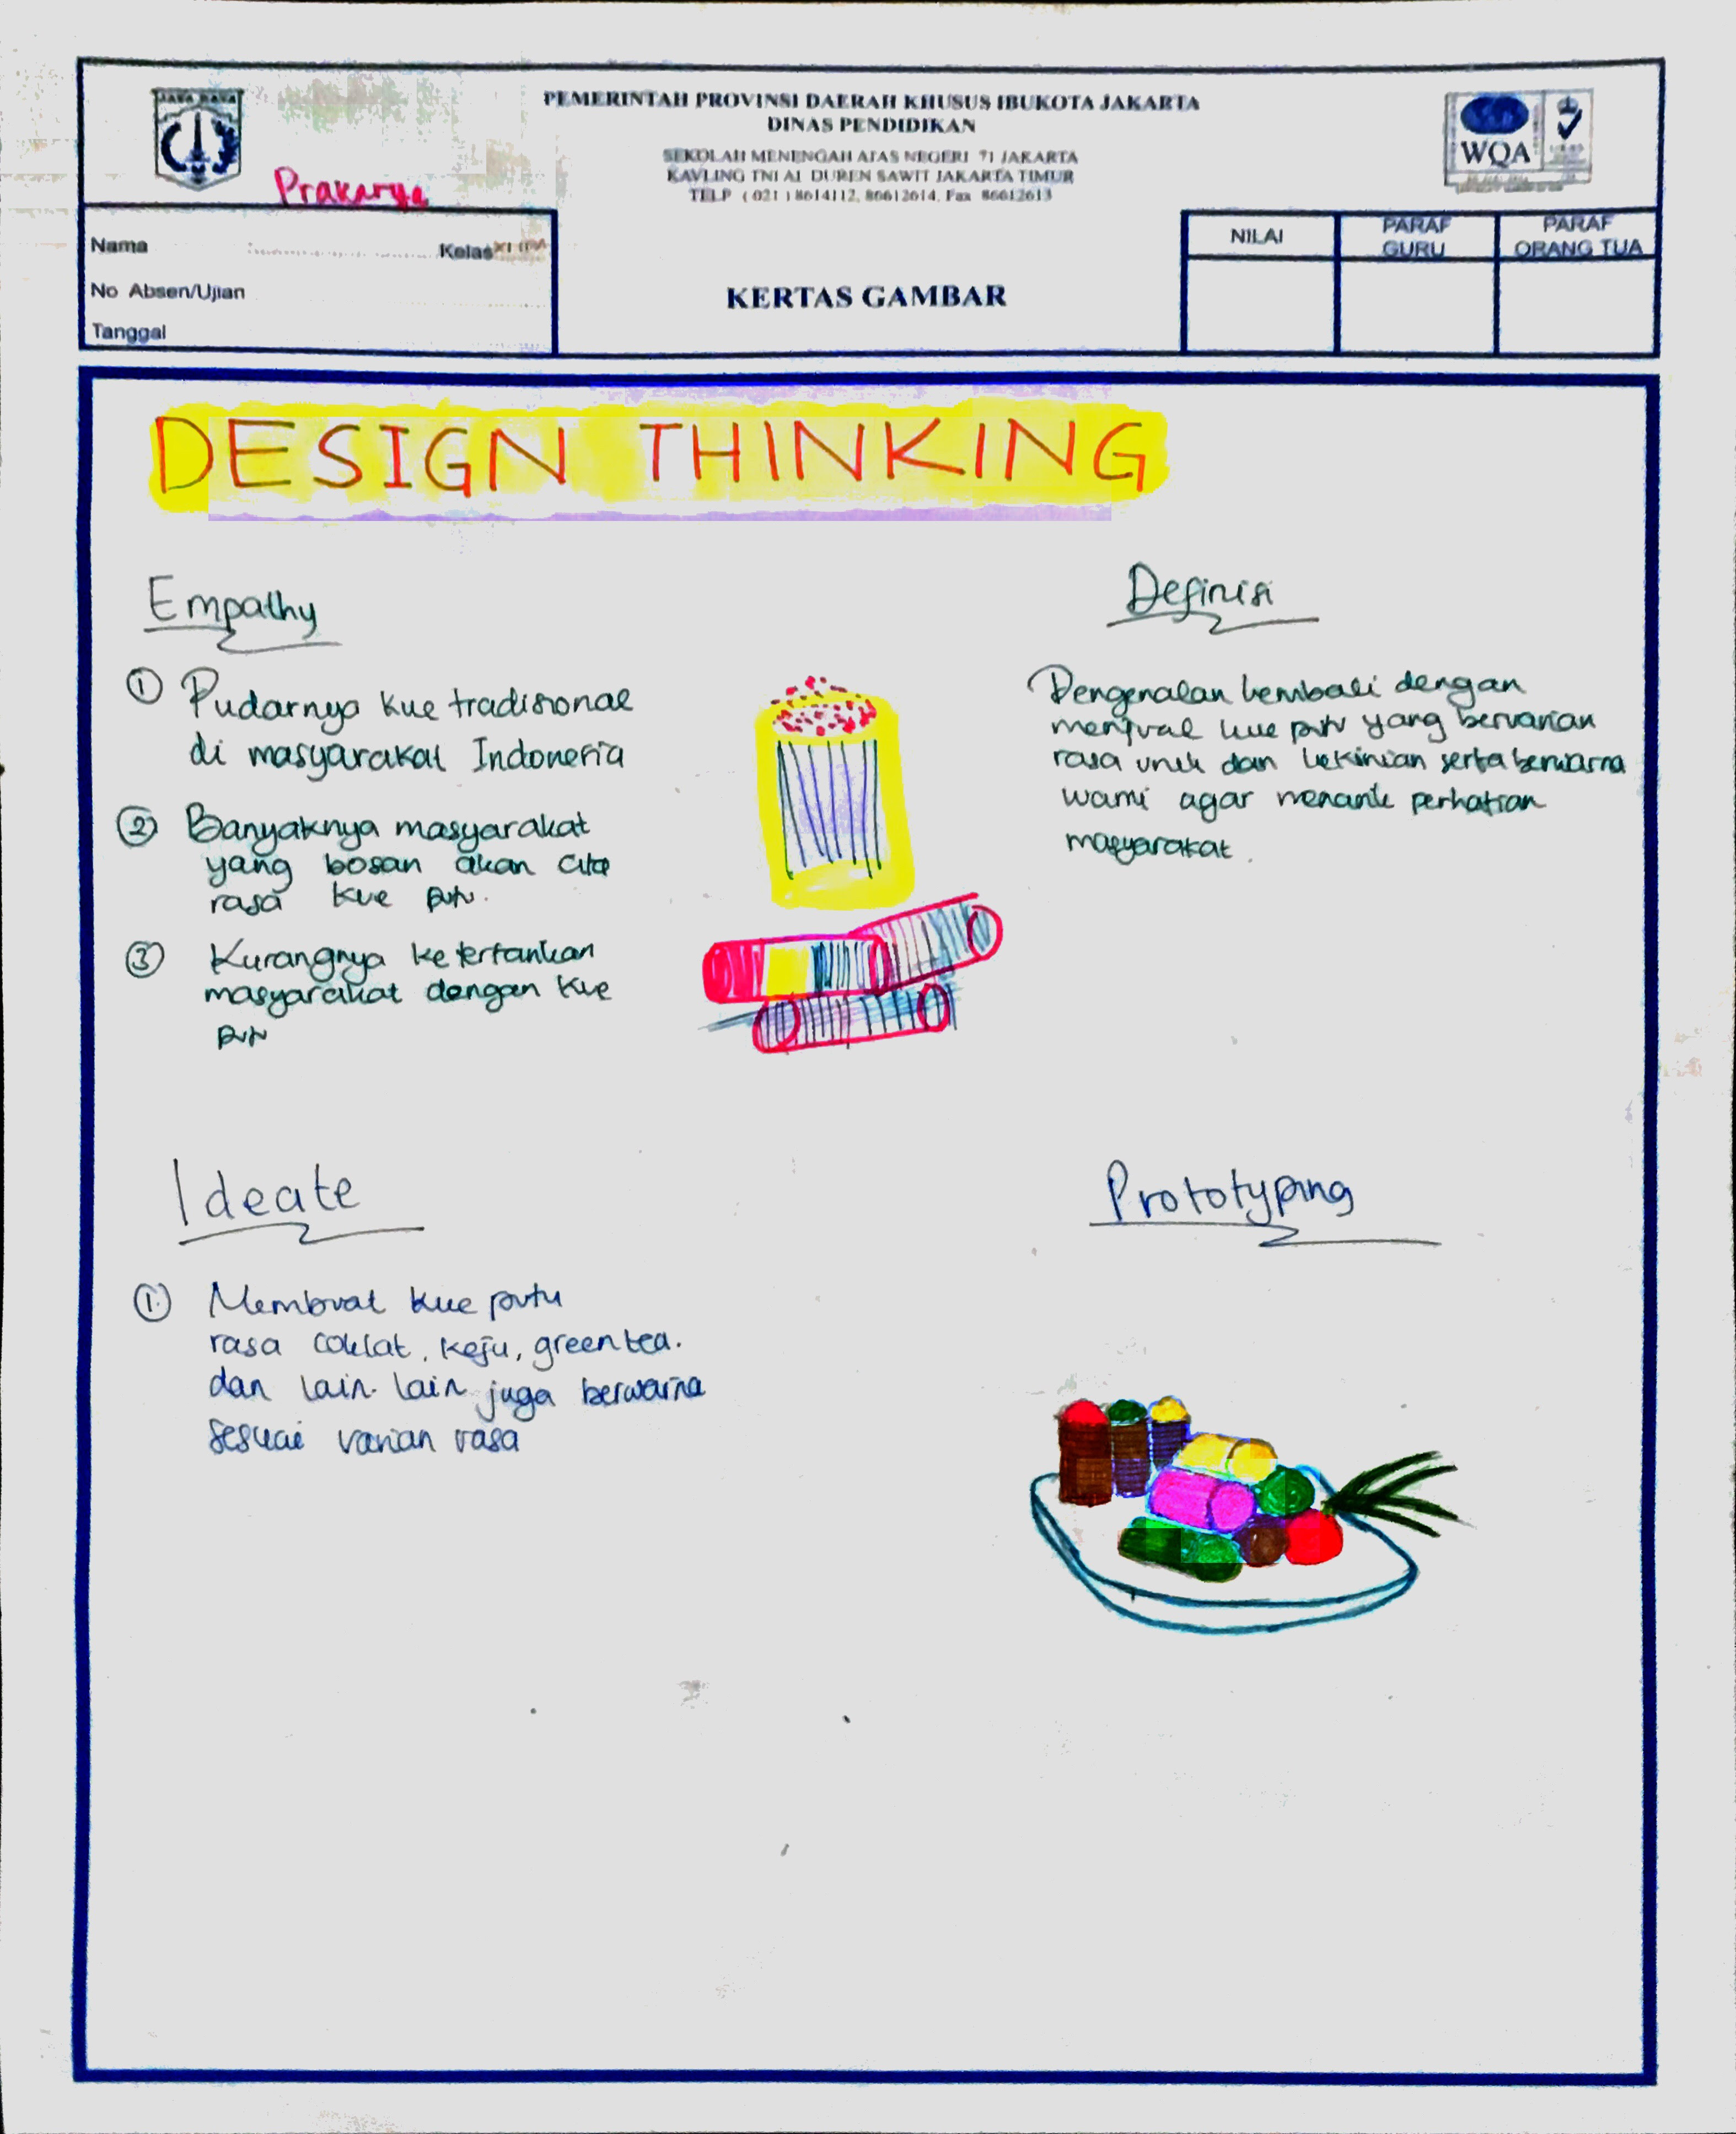 JAYA RAYA
PEMERINTAH PROVINSI DAERAH KHUSUS IBUKOTA JAKARTA
DINAS PENDIDIKAN
SEKOLAH MENENGAH ATAS NEGERI 71 JAKARTA
KAVLING TNI AL DUREN SAWIT JAKARTA TIMUR
TELP ( 021 ) 8614112, 86612614, Fax 86612613
WQA
Prakarya
Nama Kelas XI IPA
No Absen/Ujian
Tanggal
KERTAS GAMBAR
NILAI
PARAF
GURU
PARAF
ORANG TUA
DESIGN THINKING
Empathy
① Pudarnya kue tradisional
di masyarakat Indonesia
② Banyaknya masyarakat
yang bosan akan cita
rasa kue putu.
③ Kurangnya ketertarikan
masyarakat dengan kue
putu
Definisi
Pengenalan kembali dengan
menjual kue putu yang bervarian
rasa unik dan kekinian serta berwarna
warni agar menarik perhatian
masyarakat.
Ideate
① Membuat kue putu
rasa coklat, keju, greentea.
dan lain-lain juga berwarna
sesuai varian rasa
Prototyping